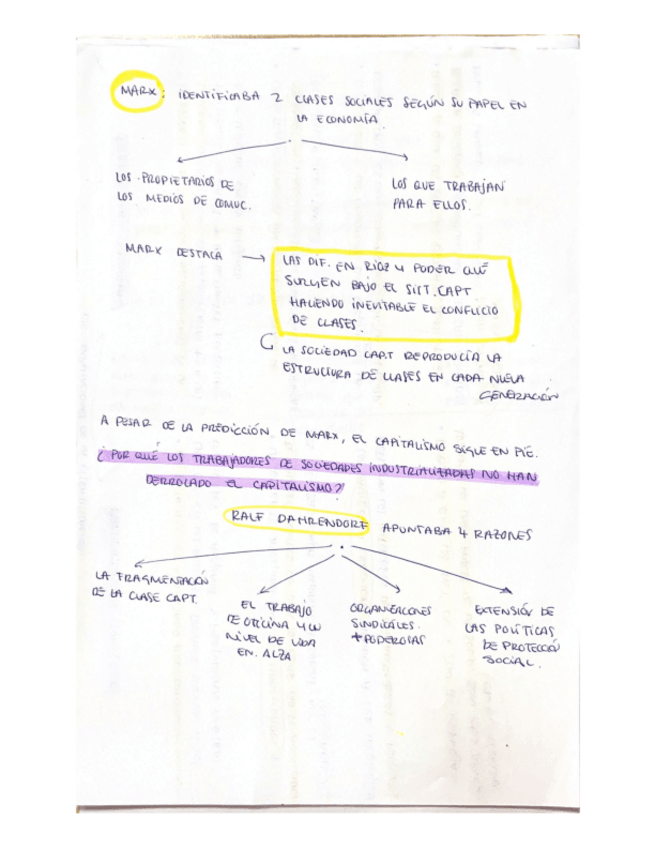 MARX: IDENTIFICABA 2 CLASES SOCIALES SEGÚN SU PAPEL EN
LA ECONOMÍA.
LOS PROPIETARIOS DE
LOS MEDIOS DE COMUC.
LOS QUE TRABAJAN
PARA ELLOS.
MARX DESTACA →
LAS DIF. EN RIQZ Y PODER QUE
SURGEN BAJO EL SIST. CAPT
HACIENDO INEVITABLE EL CONFLICTO
DE CLASES.
LA SOCIEDAD CAPT REPRODUCÍA LA
ESTRUCTURA DE CLASES EN CADA NUEVA
GENERACIÓN
A PESAR DE LA PREDICCIÓN DE MARX, EL CAPITALISMO SIGUE EN PIE.
¿POR QUÉ LOS TRABAJADORES DE SOCIEDADES INDUSTRIALIZADAS NO HAN
DERROCADO EL CAPITALISMO?
RALF DAHRENDORF APUNTABA 4 RAZONES
LA FRAGMENTACIÓN
DE LA CLASE CAPT.
EL TRABAJO
DE OFICINA Y UN
NIVEL DE VIDA
EN ALZA
ORGANIZACIONES
SINDICALES
+ PODEROSAS
EXTENSIÓN DE
LAS POLÍTICAS
DE PROTECCIÓN
SOCIAL.